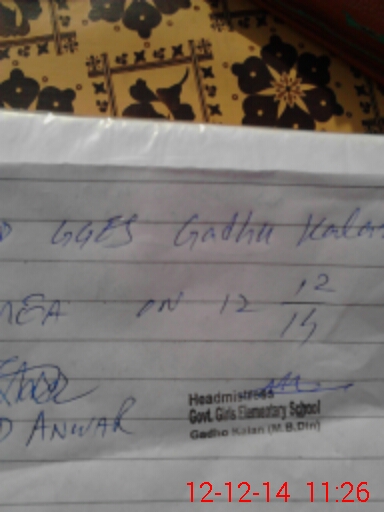 GGES Gadhu Kalan
MEA ON 12 12/14
ANWAR
Headmistress
Govt. Girls Elementary School
Gadho Kalan (M.B.Din)
12-12-14 11:26